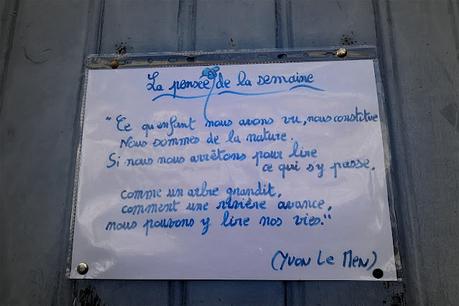 La pensée de la semaine
"Ce qu'enfant nous avons vu, nous constitue
Nous sommes de la nature.
Si nous nous arrêtons pour lire
ce qui s'y passe,
comme un arbre grandit,
comment une rivière avance,
nous pouvons y lire nos vies."
(Yvon Le Men)